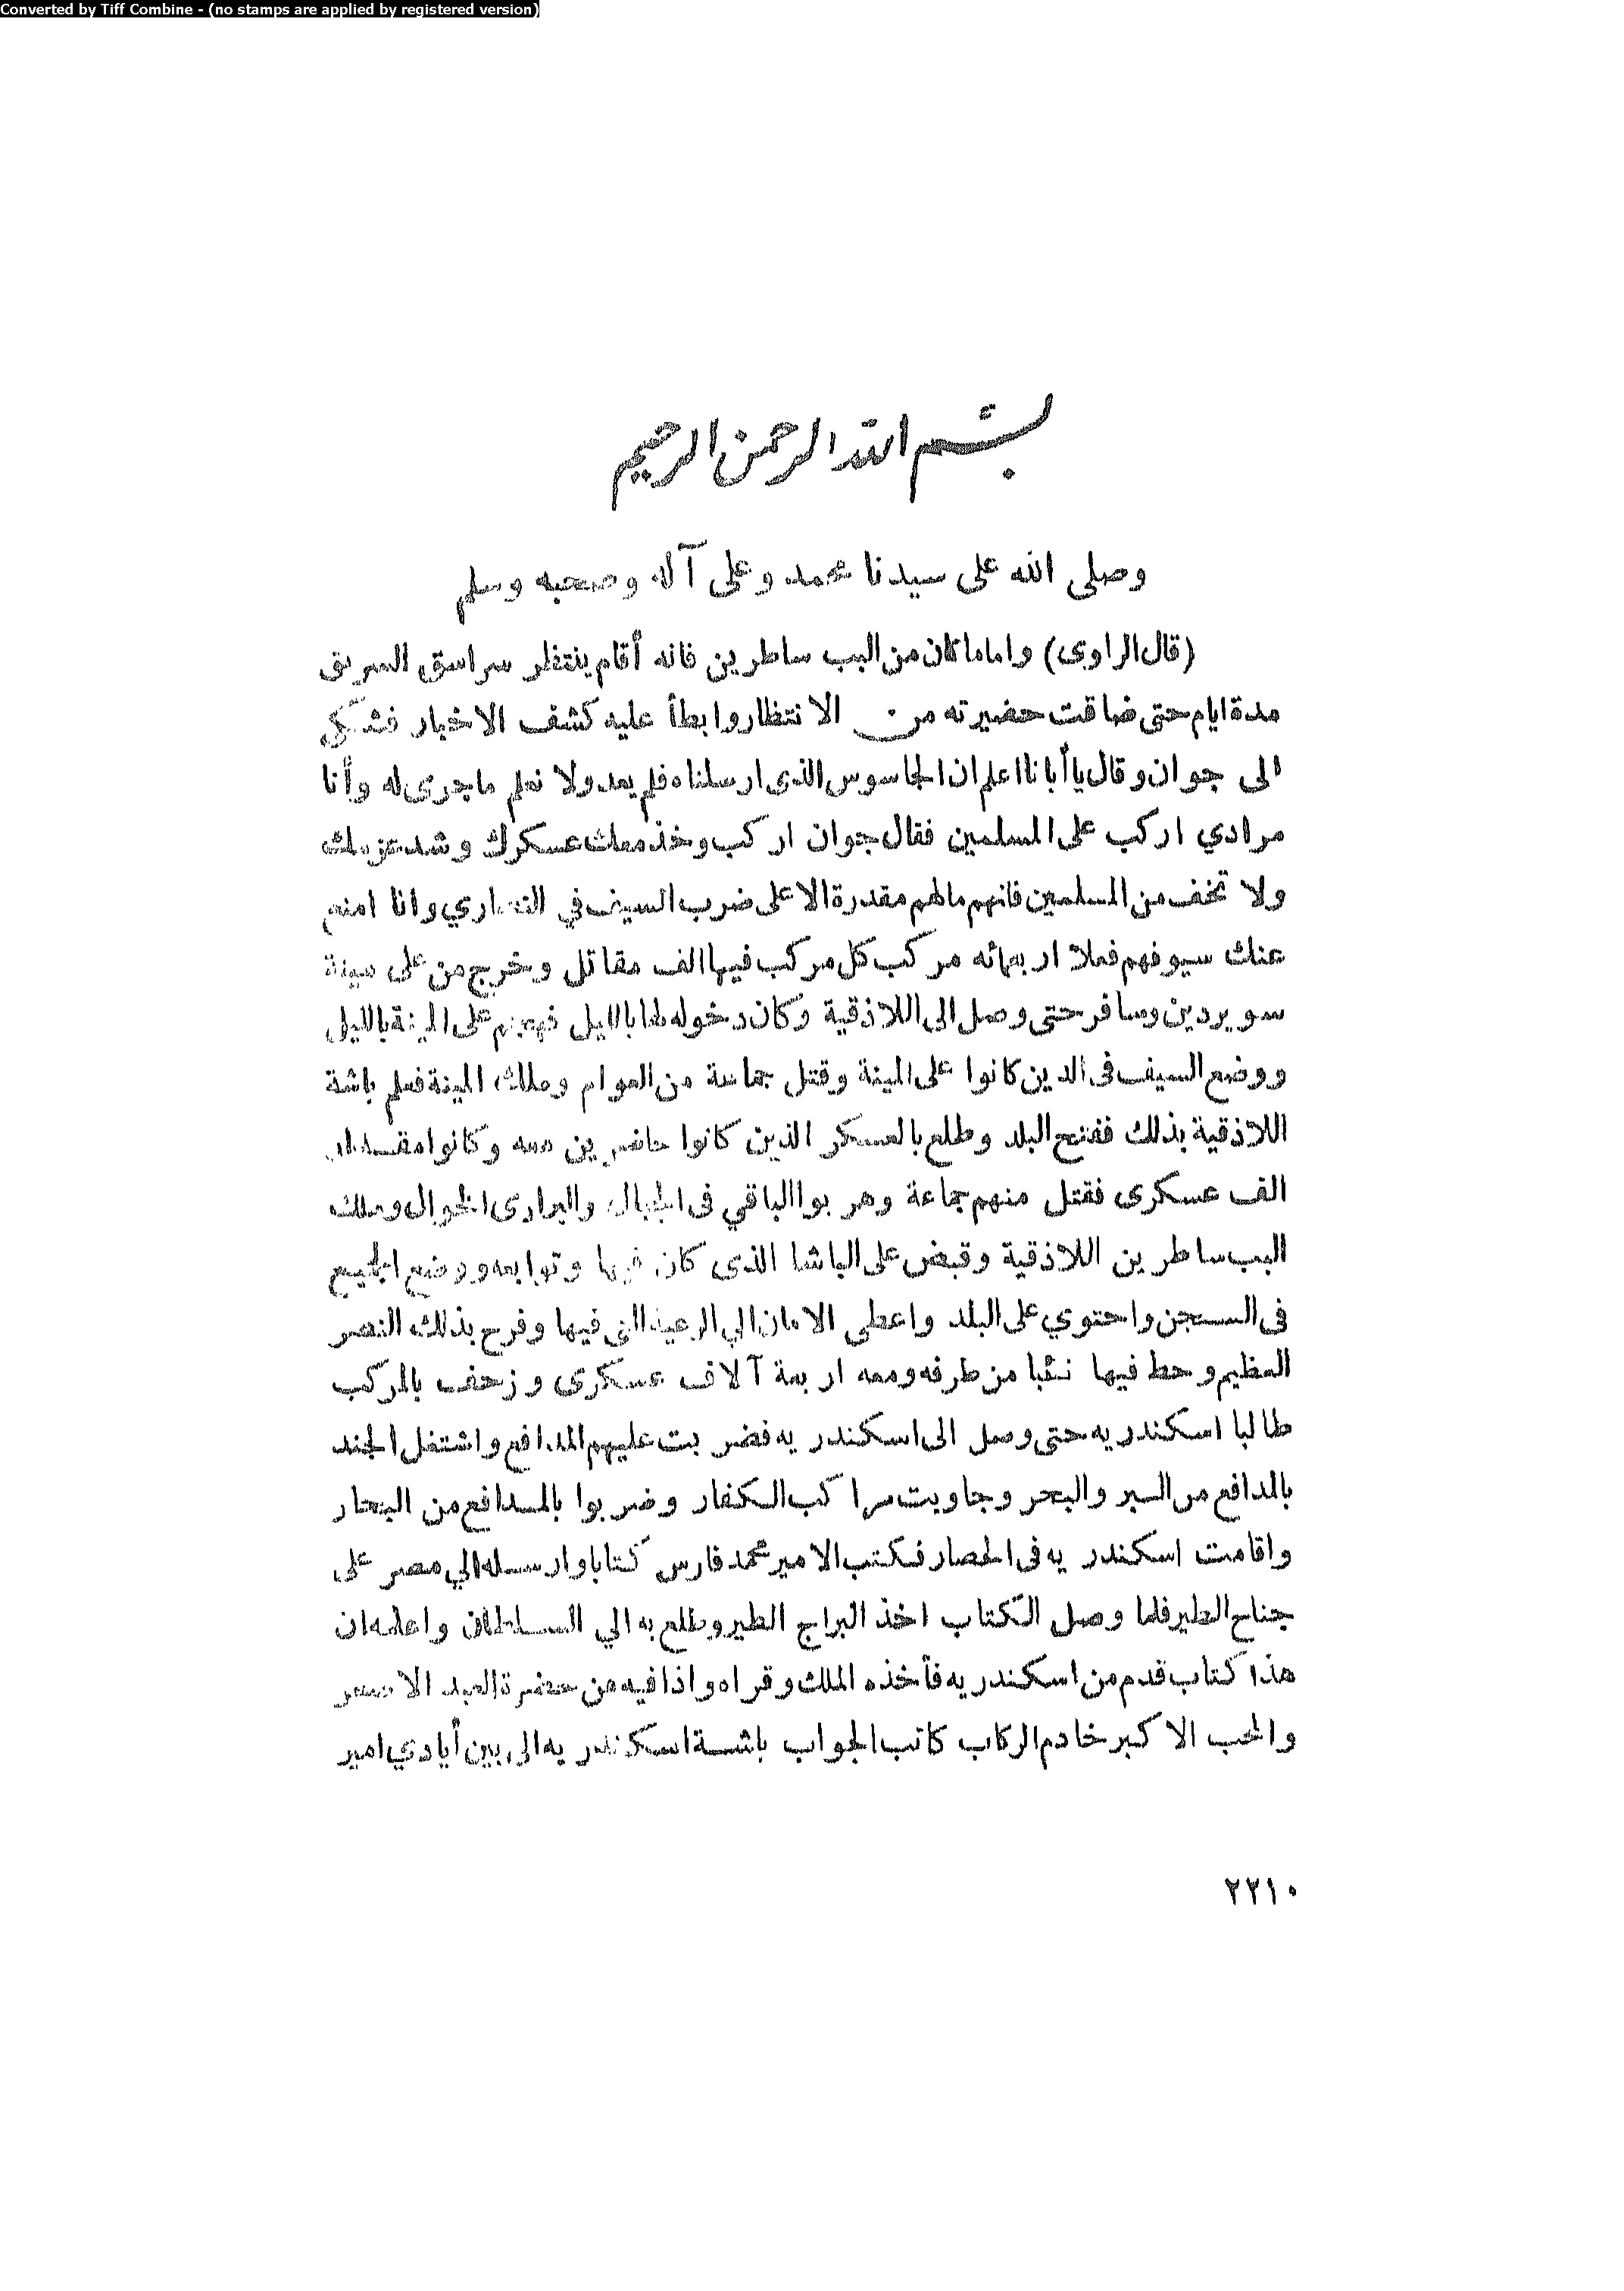 Converted by Tiff Combine - (no stamps are applied by registered version)
بسم الله الرحمن الرحيم
وصلى الله على سيدنا محمد وعلى آله وصحبه وسلم
(قال الراوى) واما ما كان من البب ساطرين فانه أقام ينتظر سراسق السريق
مدة ايام حتى ضاقت حضيرته من الانتظار وابطأ عليه كشف الاخبار فشكى
الى جوان وقال يا أبانا اعلم ان الجاسوس الذى ارسلناه فلم يعد ولا نعلم ما جرى له وأنا
مرادي اركب على المسلمين فقال جوان اركب وخذ معك عسكرك وشد عزمك
ولا تخف من المسلمين فانهم مالهم مقدرة الا على ضرب السيف في النصاري وانا امنع
عنك سيوفهم فملا اربعمائه مركب كل مركب فيها الف مقاتل وخرج من على مينة
سويردين وسافر حتى وصل الى اللاذقية وكان دخوله لها بالليل فهجم على المينة بالليل
ووضع السيف فى الدين كانوا على المينة وقتل جماعة من العوام وملك المينة فعلم باشة
اللاذقية بذلك ففتح البلد وطلع بالعسكر الذين كانوا حاضرين معه وكانوا مقدار
الف عسكرى فقتل منهم جماعة وهربوا الباقي فى الجبال والبرارى الخوال وملك
البب ساطرين اللاذقية وقبض على الباشا الذى كان فيها وتوابعه ووضع الجميع
فى السجن واحتوي على البلد واعطى الامان الي الرعية التى فيها وفرح بذلك النصر
العظيم وحط فيها نئبا من طرفه ومعه اربعة آلاف عسكرى وزحف بالمركب
طالبا اسكندريه حتى وصل الى اسكندريه فضربت عليهم المدافع واشتغل الجند
بالمدافع من البر والبحر وجاوبت مراكب الكفار وضربوا بالمدافع من البحار
واقامت اسكندريه فى الحصار فكتب الامير محمد فارس كتابا وارسله الي مصر على
جناح الطير فلما وصل الكتاب اخذ البراج الطير وطلع به الي السلطان واعلمه ان
هذا كتاب قدم من اسكندريه فأخذه الملك وقراه واذا فيه من حضرة العبد الاصغر
والمحب الاكبر خادم الركاب كاتب الجواب باشة اسكندريه الى بين أيادي امير
٢٢١٠